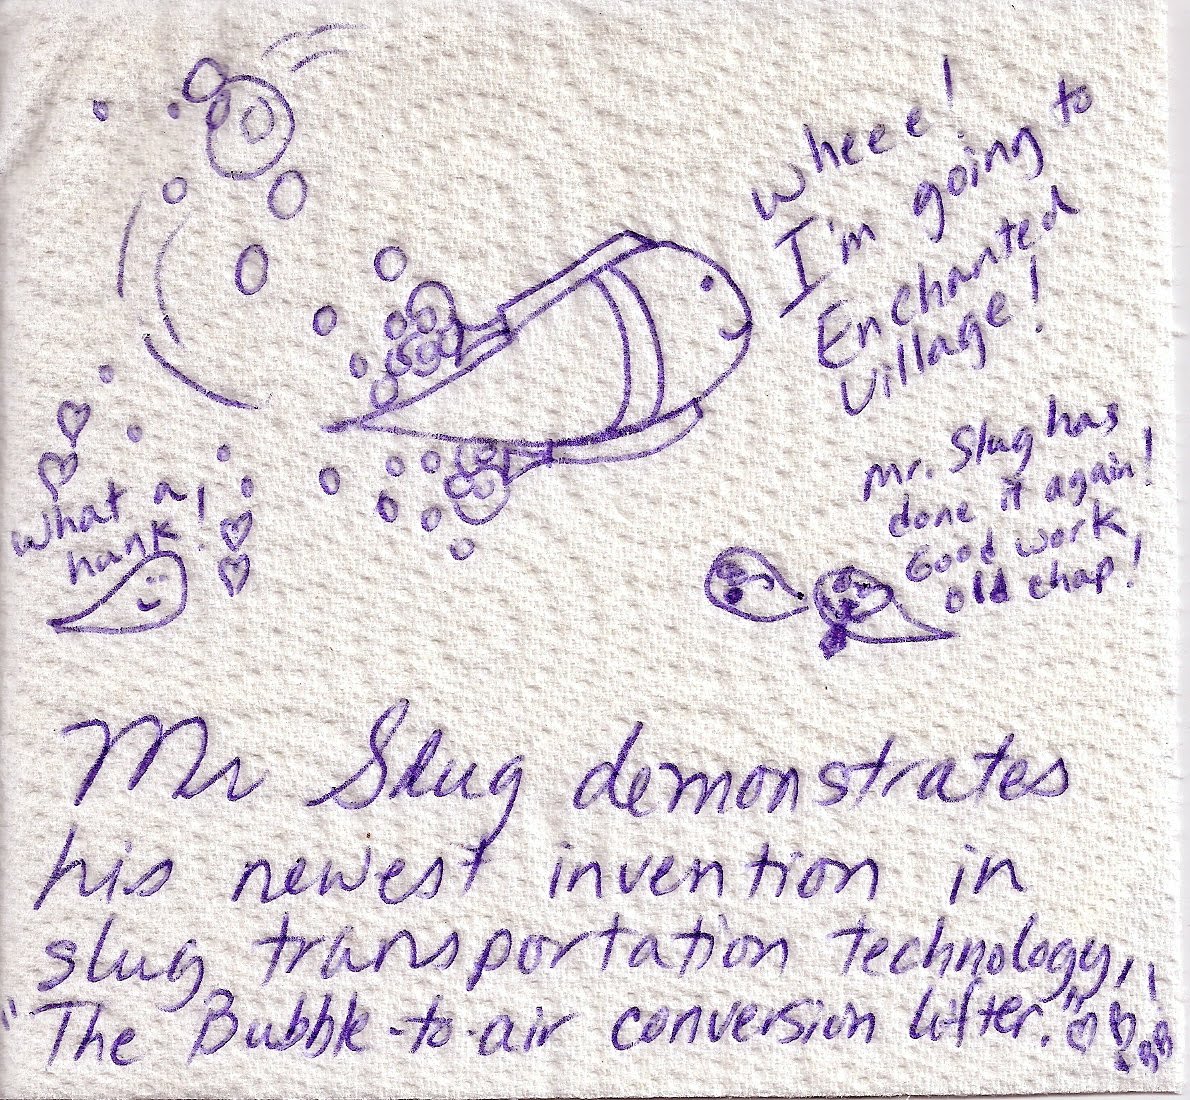 wheee!
I'm going to
Enchanted
Village!
Mr. Slug has
done it again!
Good work,
old chap!
What a
hank!
Mr Slug demonstrates
his newest invention in
slug transportation technology,
"The Bubble-to-air conversion lifter."